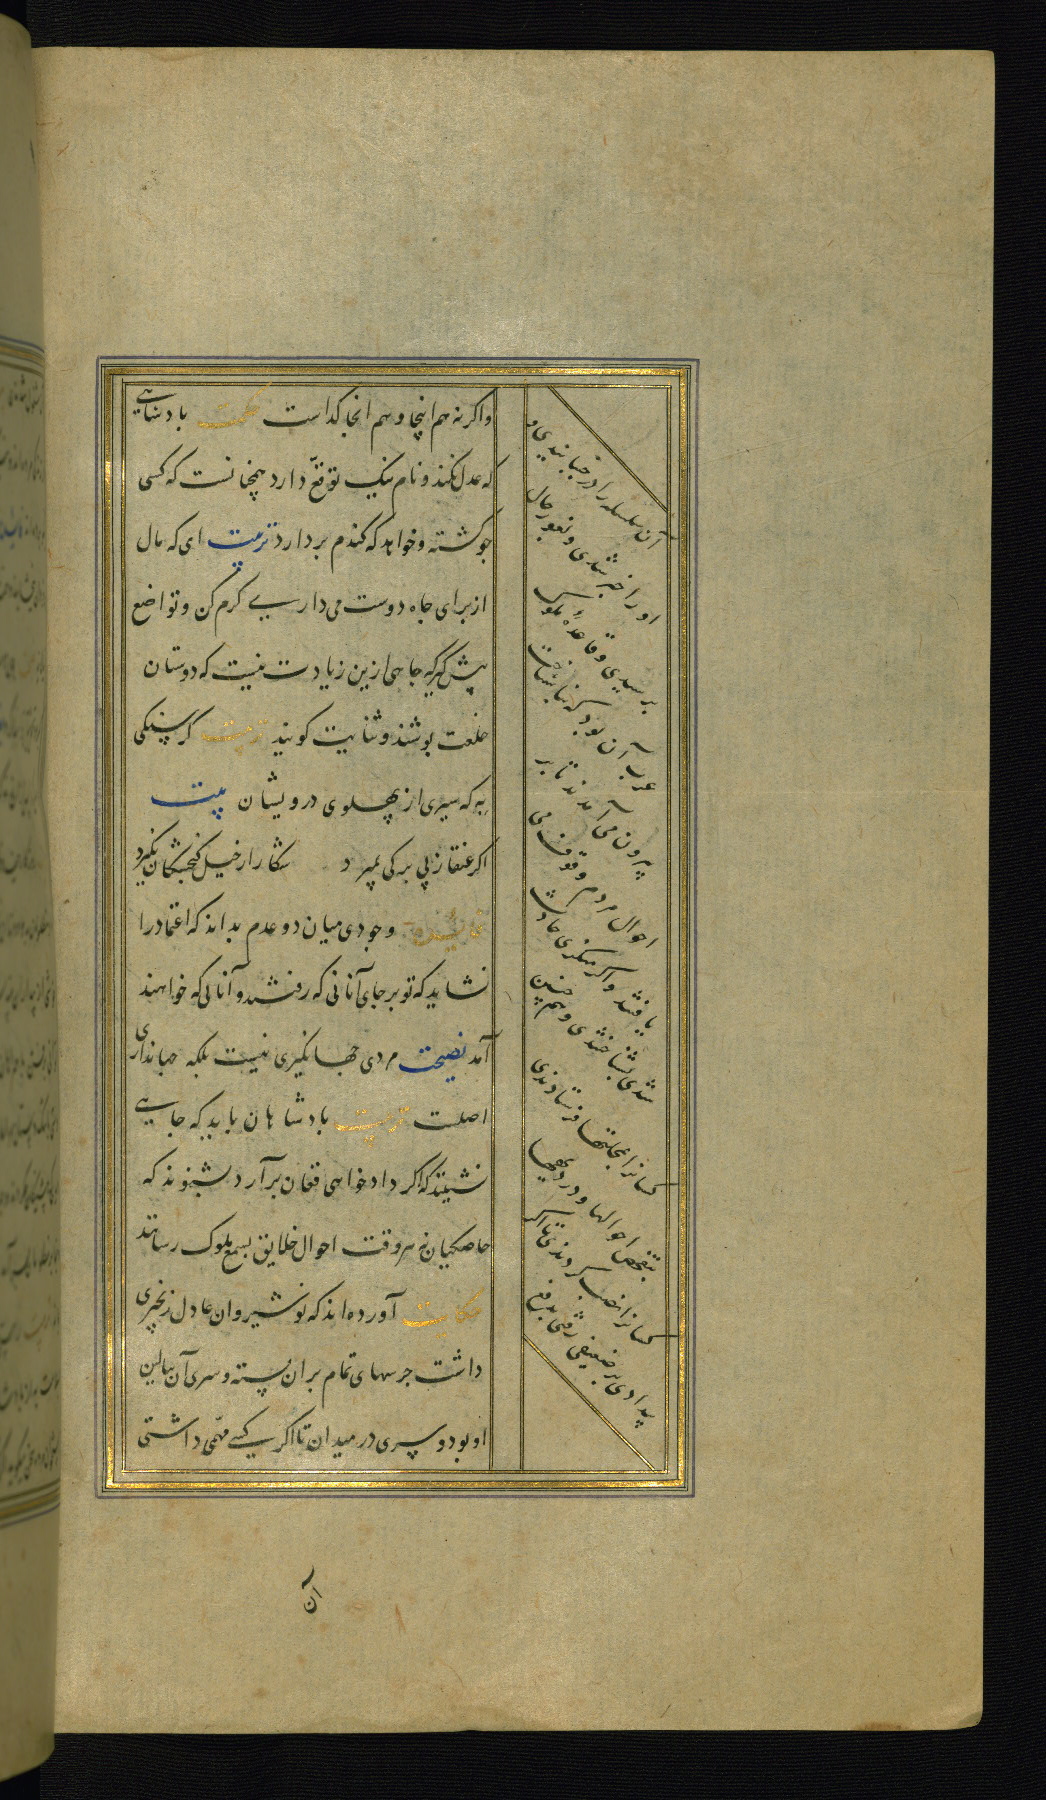 واکر نه هم اینجا و هم انجا کداست حکمت بادشاهی
که عدل نکند و نام نیک توقع دارد همچنانست که کسی
جو کشته و خواهد که کندم بردارد تربیت ای که مال
از برای جاه دوست می داریی کرم کن و تواضع
پیش گیر که جاهی ازین زیادت نیست که دوستان
خلعت پوشند و ثنایت کویند تربیت کرسنکی
به که سیری از پهلوی درویشان بیت
اکر عنقا ز بی برکی بمیرد شکار از خیل کنجشکان نکیرد
وجودی میان دو عدم بداند که اعتماد را
نشاید که تو بر جای آنانی که رفتند و آنانی که خواهند
آمد نصیحت مردی جهانکیری نیست بلکه جهانداری
اصلست تربیت بادشاهان باید که جایی
نشینند که اکر دادخواهی فغان برآرد شنوند که
حاصکیان نه هر وقت احوال خلایق بسمع ملوک رسانند
حکایت آورده اند که نوشیروان عادل زنجیری
داشت جرسهای تمام بران بسته و سری آن ببالین
او بود و سری در میدان تا اکر کسی مهمی داشتی
آن سلسله را در جنبانیدی و
او را خبر شدی و بغور حال
برسیدی و قاعده ملوک
عرب آن بود که ناشناخت
بیرون می آمدند تا بر
احوال مردم وقوف می
یافتند و اکر منکری حادث
شدی بشناختندی و هم چنین
کسانرا بمحلتها فرستادندی
بتفحص احوالها و در دیهها
کسانرا نصب کردندی تا اکر
بیدادی بر ضعیفی رفتی بدفع
آن